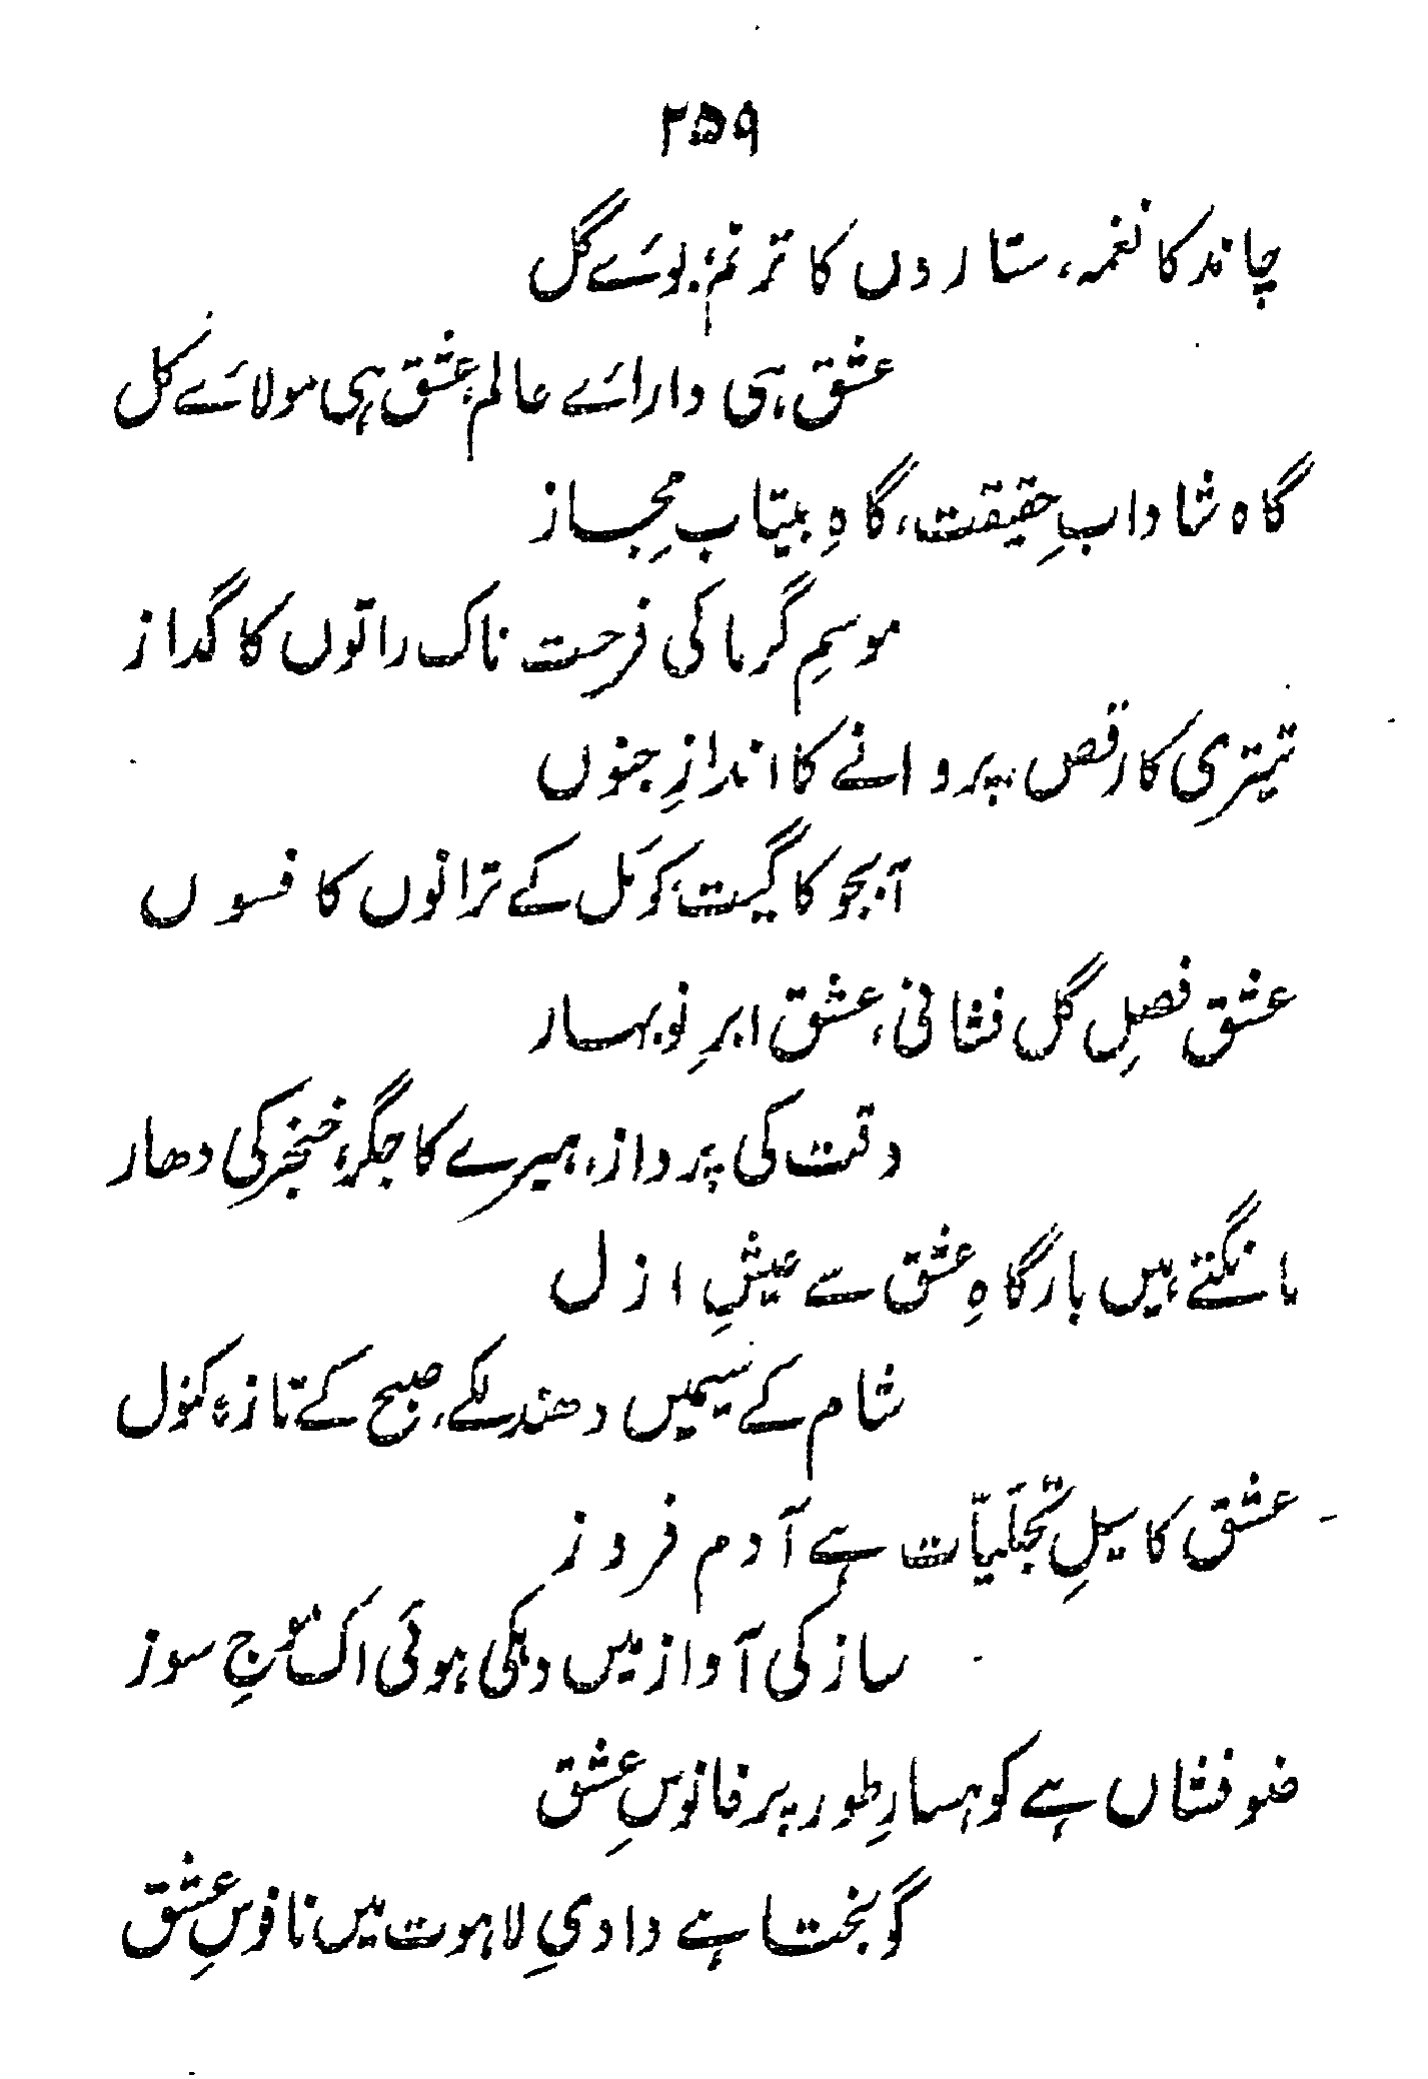 ۲۵۹
چاند کا نغمہ، ستاروں کا ترنم، بوئے گل
عشق ہی دارائے عالم، عشق ہی مولائے کل
گاہ شادابِ حقیقت، گاہِ بیتابِ مجاز
موسمِ گرما کی فرحت ناک راتوں کا گداز
تیتری کا رقص، پروانے کا اندازِ جنوں
آبجو کا گیت، کوئل کے ترانوں کا فسوں
عشق فصلِ گل فشانی، عشق ابرِ نوبہار
وقت کی پرواز، ہیرے کا جگر، خنجر کی دھار
مانگتے ہیں بارگاہِ عشق سے عیشِ ازل
شام کے سیمیں دھندلکے، صبح کے تازہ کنول
عشق کا سیلِ تجلیّات ہے آدم فروز
ساز کی آواز میں دہکی ہوئی اک موجِ سوز
ضو فشاں ہے کوہسارِ طور پر فانوسِ عشق
گونجتا ہے وادیِ لاہوت میں ناقوسِ عشق